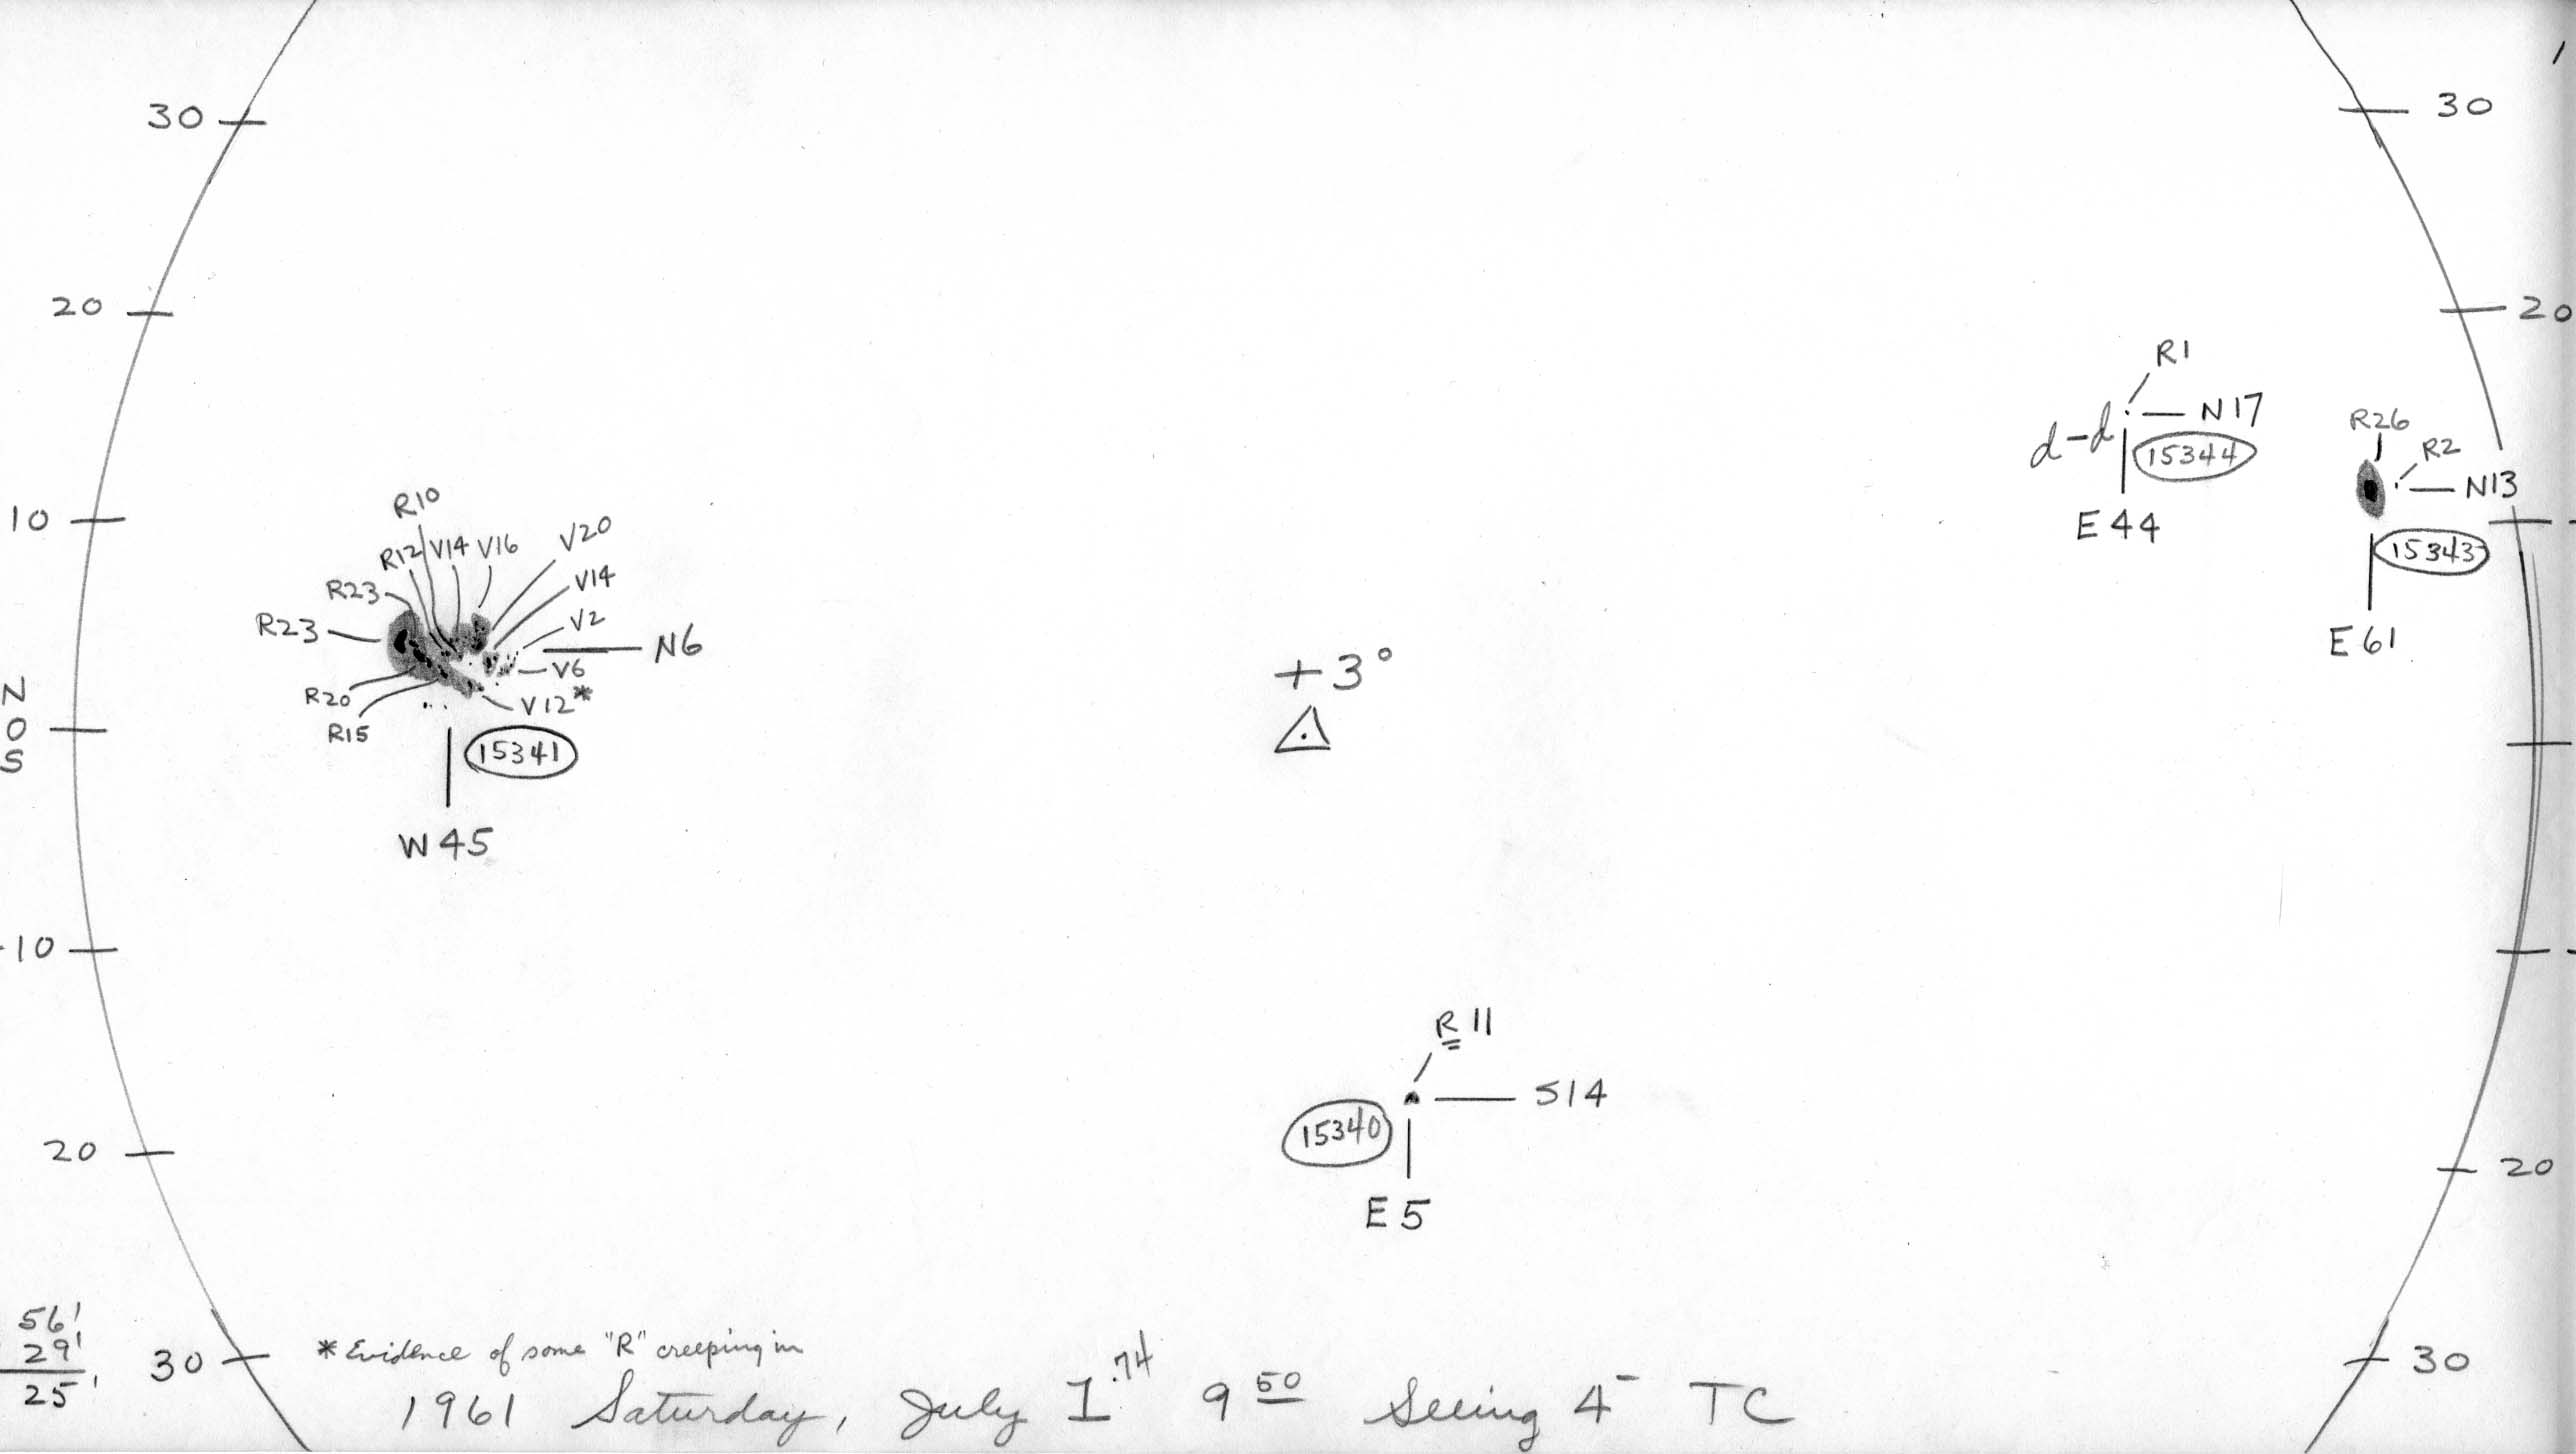 30
30
20
20
R1
N17
d-d
15344
E44
R26
R2
N13
15343
E61
10
R10
R12
V14
V16
V20
V14
R23
R23
V2
N6
V6
R20
V12*
R15
15341
W45
N
0
S
+3°
10
R11
S14
15340
E5
20
20
56'
29'
25'
30
30
* Evidence of some "R" creeping in
1961 Saturday, July 1.74 9 50 Seeing 4- TC